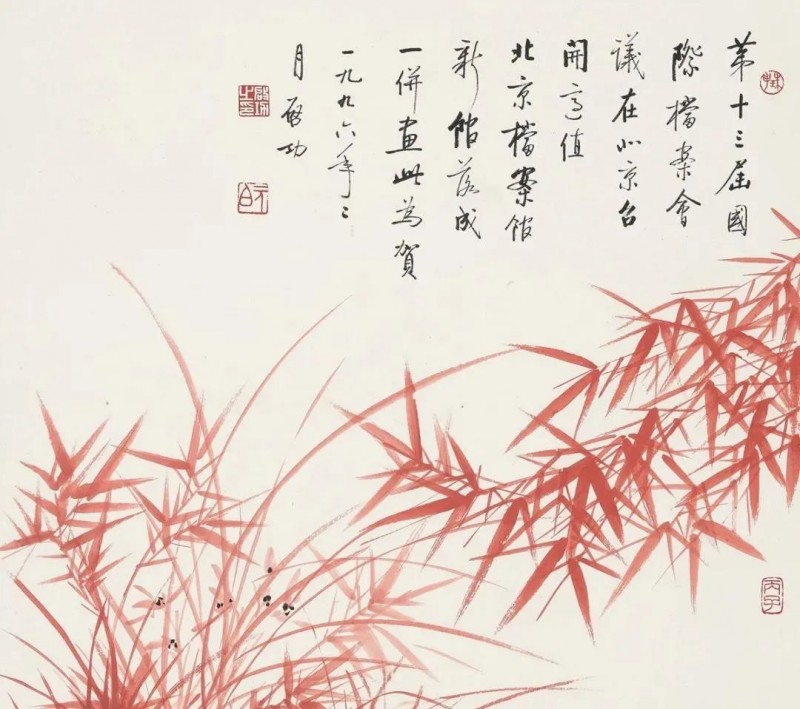 第十三届國
際檔案會
議在北京召
開適值
北京檔案館
新館落成
一併畫此為賀
一九九六年二
月啟功
啟功之印
元白
丙子